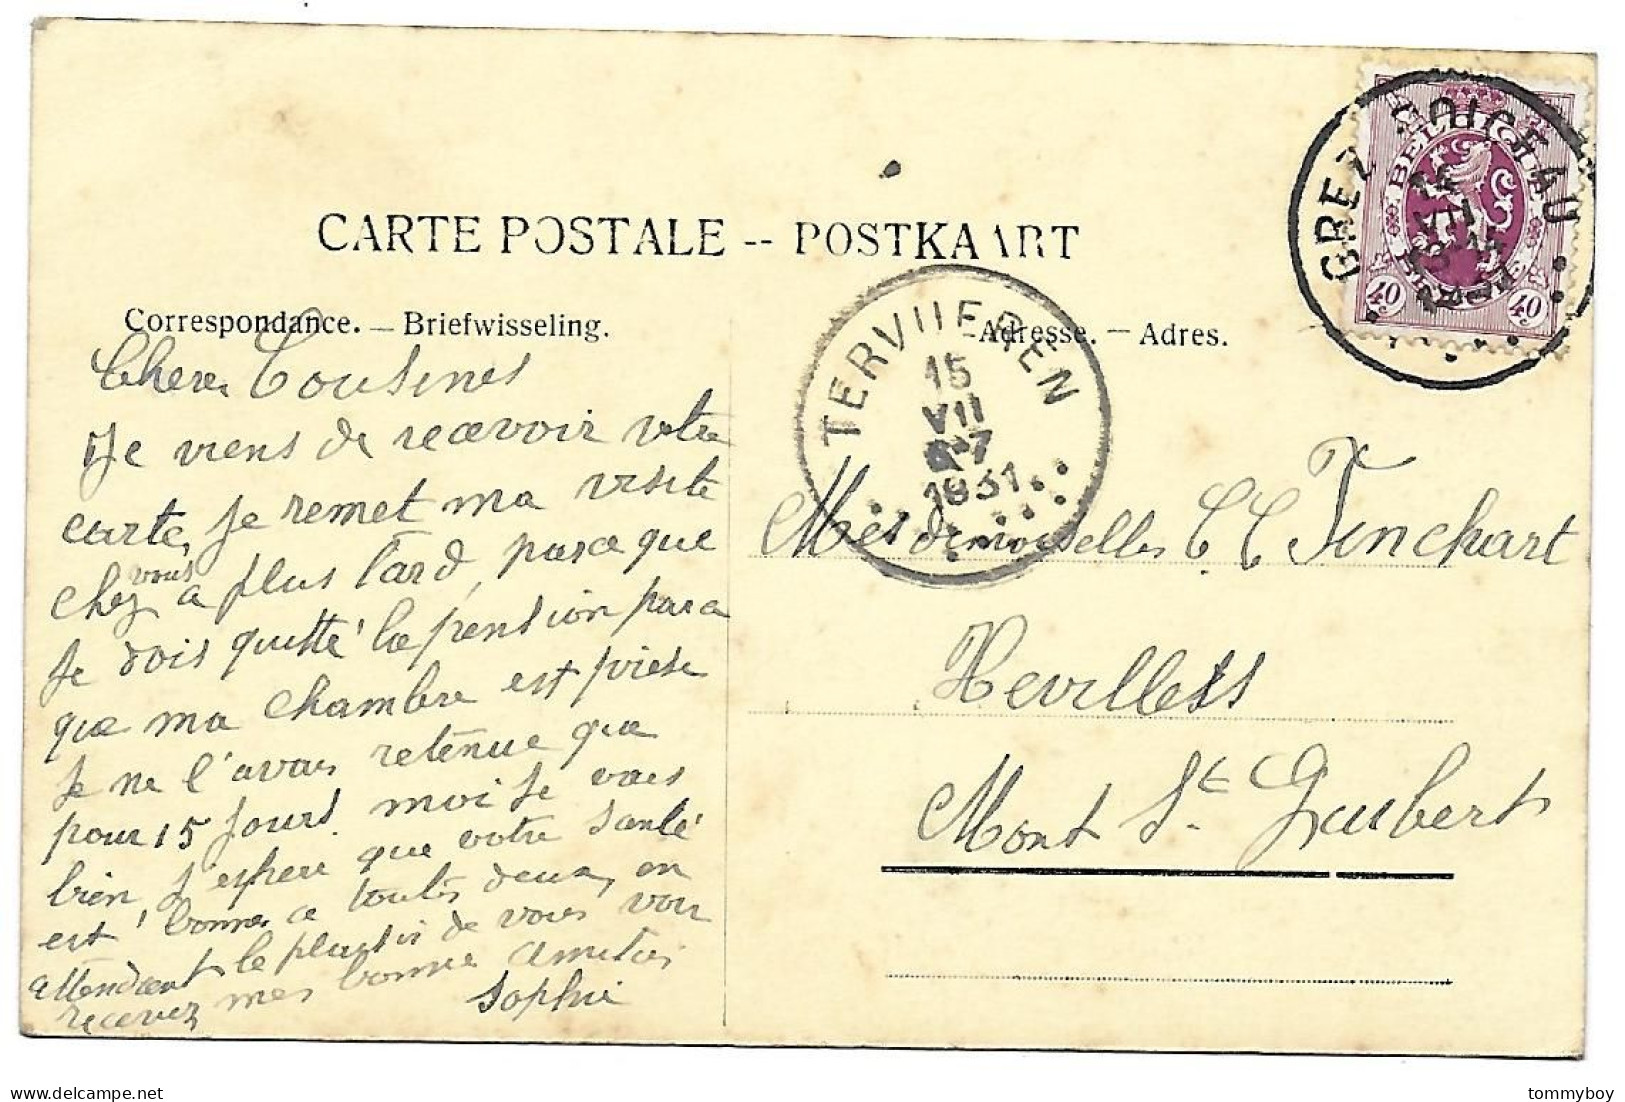 CARTE POSTALE -- POSTKAART
Correspondance. — Briefwisseling.
Adresse. — Adres.
Cheres Cousines
Je viens de recevoir votre
carte, je remet ma visite
chez vous a plus tard, parce que
je dois quitté la pension parce
que ma chambre est prise
je ne l'avais retenue que
pour 15 jours. moi je vais
bien, j'espere que votre santé
est bonne a toutes deux, en
attendant le plaisir de vous voir
recevez mes bonne amitiés
Sophie
GREZ-DOICEAU
BELGIQUE
40c 40c
TERVUEREN
15
VII
6-7
1931
Mesdemoiselles C C Tinchart
Hevillers
Mont St. Guibert
tommyboy